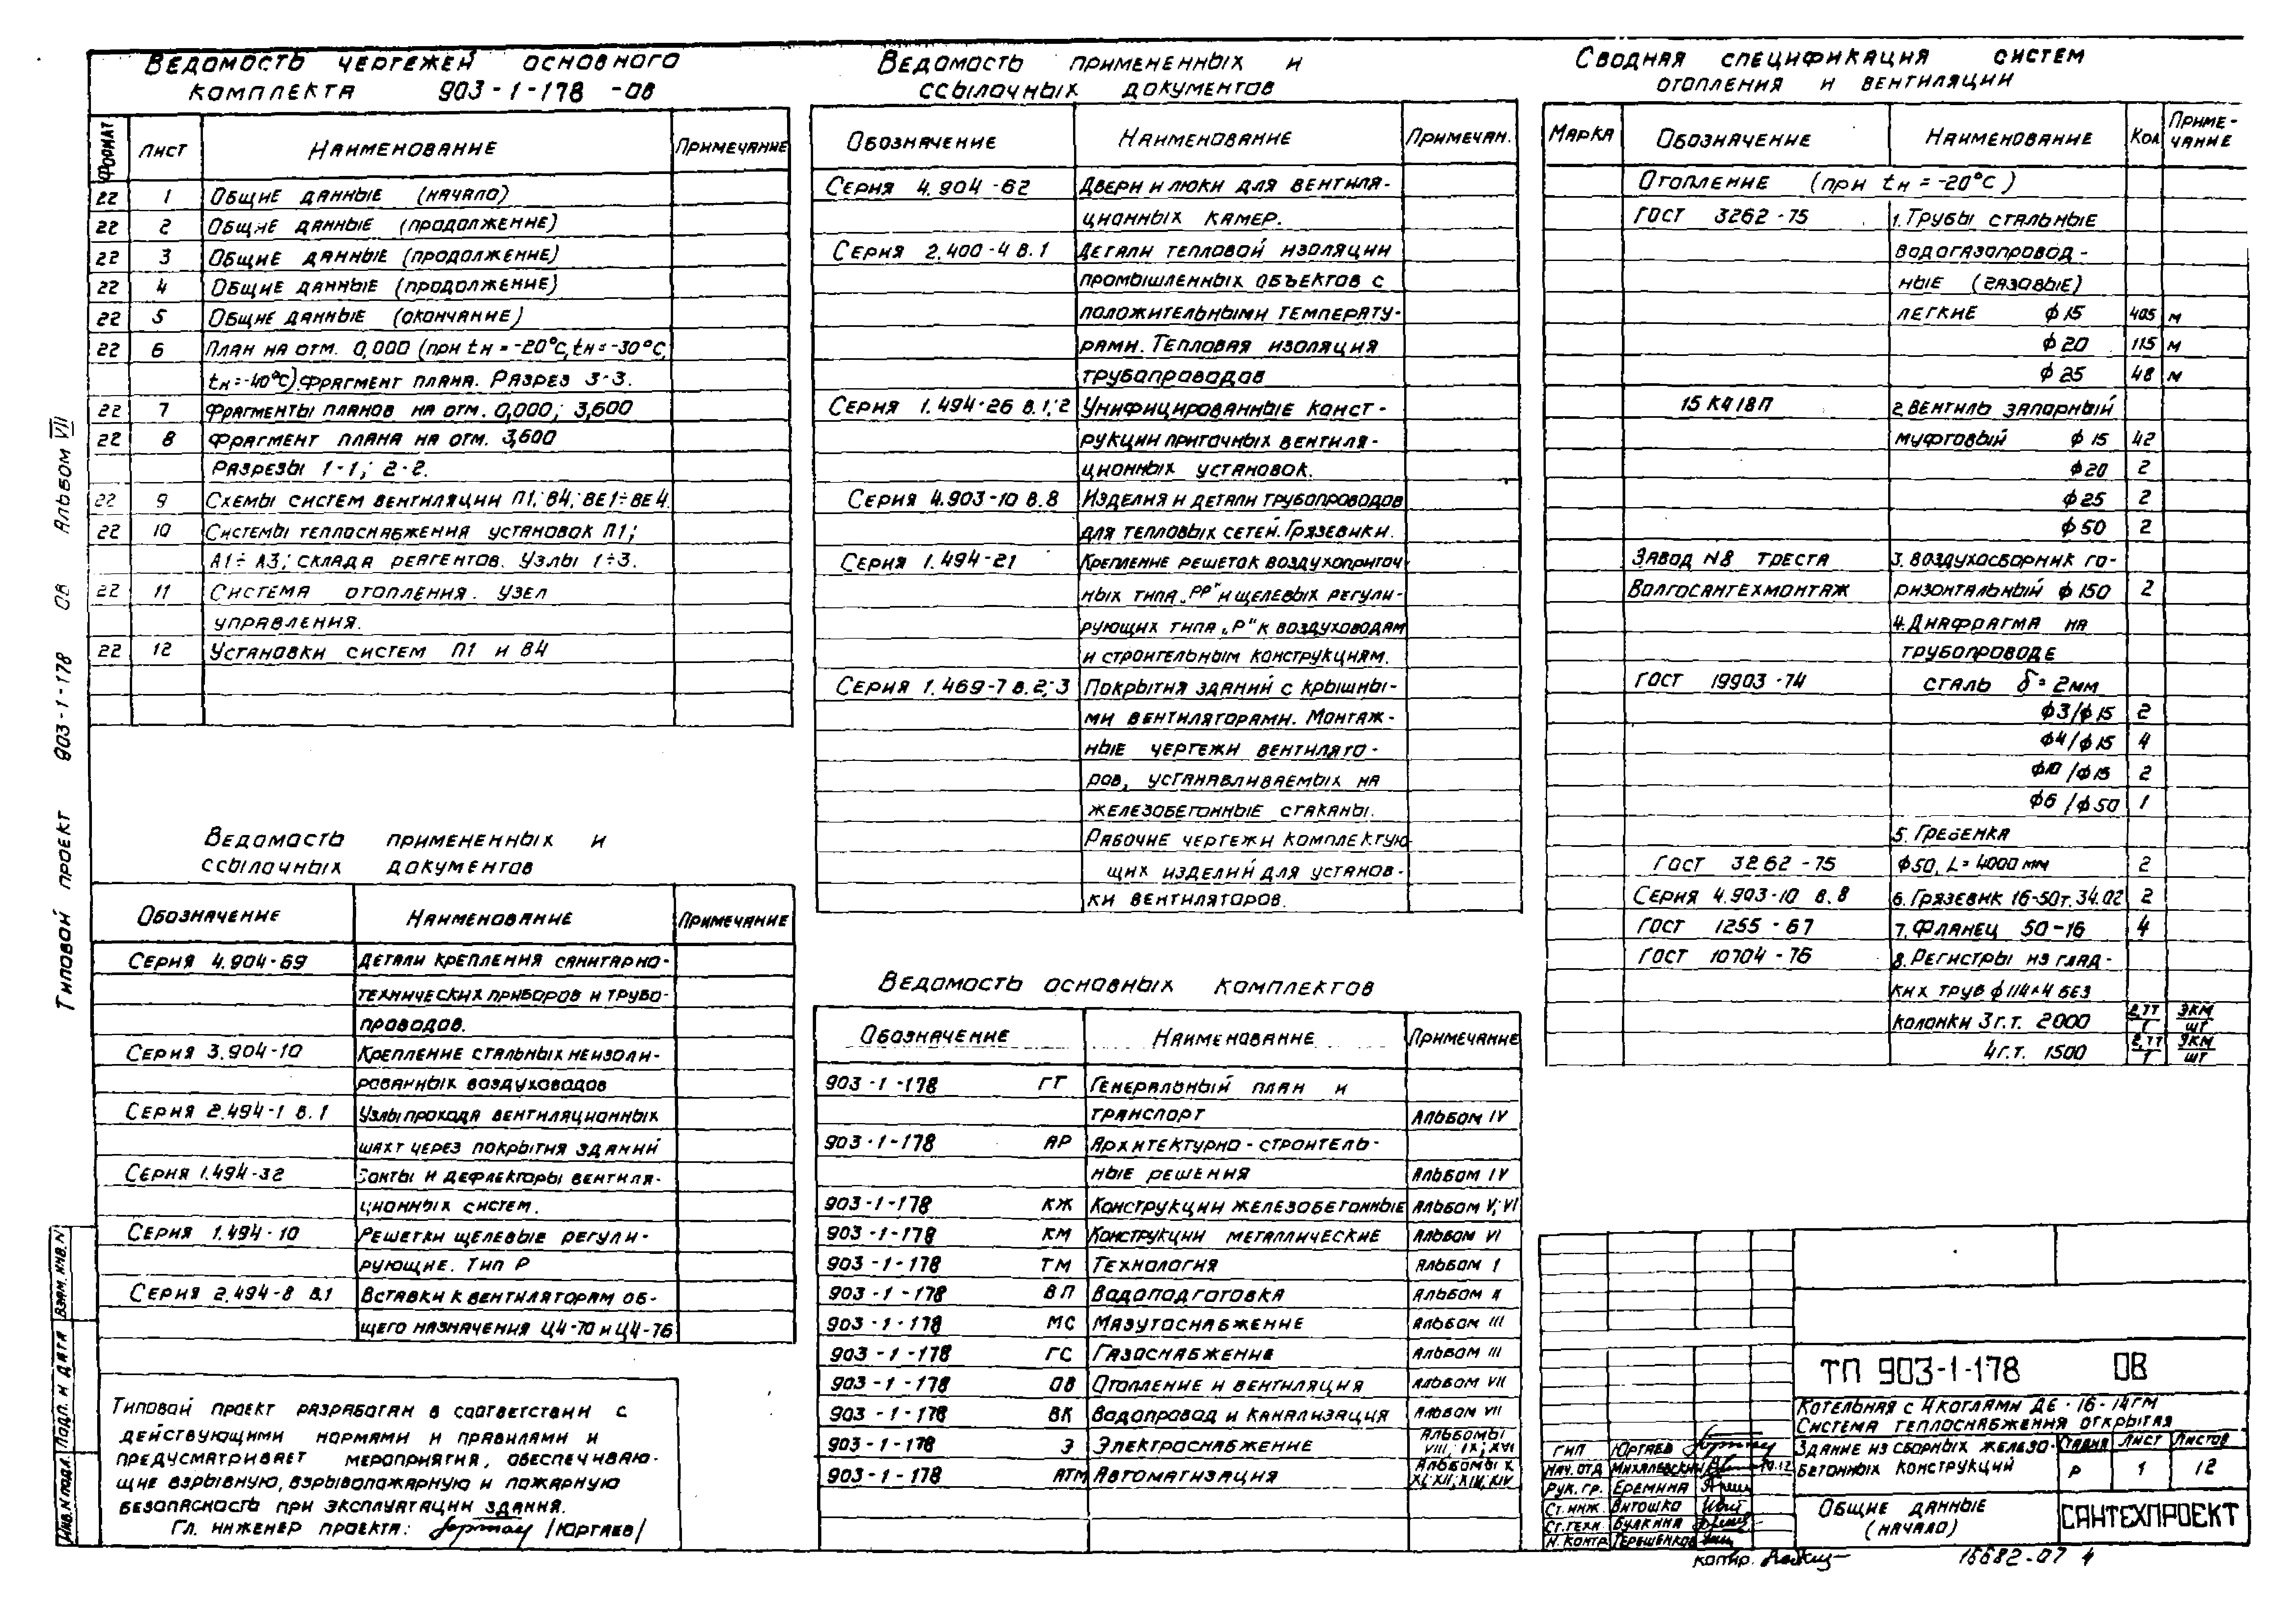 Ведомость чертежей основного
комплекта 903-1-178 -ОВ
Формат Лист Наименование Примечание
22 1 Общие данные (начало)
22 2 Общие данные (продолжение)
22 3 Общие данные (продолжение)
22 4 Общие данные (продолжение)
22 5 Общие данные (окончание)
22 6 План на отм. 0,000 (при tн=-20°С, tн=-30°С,
tн=-40°С). Фрагмент плана. Разрез 3-3.
22 7 Фрагменты планов на отм. 0,000; 3,600
22 8 Фрагмент плана на отм. 3,600
Разрезы 1-1; 2-2.
22 9 Схемы систем вентиляции П1; В4; ВЕ1÷ВЕ4.
22 10 Системы теплоснабжения установок П1;
А1÷А3; склада реагентов. Узлы 1÷3.
22 11 Система отопления. Узел
управления.
22 12 Установки систем П1 и В4
Ведомость примененных и
ссылочных документов
Обозначение Наименование Примечание
Серия 4.904-69 Детали крепления санитарно-
технических приборов и трубо-
проводов.
Серия 3.904-10 Крепление стальных неизоли-
рованных воздуховодов
Серия 2.494-1 в.1 Узлы прохода вентиляционных
шахт через покрытия зданий
Серия 1.494-32 Зонты и дефлекторы вентиля-
ционных систем.
Серия 1.494-10 Решетки щелевые регули-
рующие. Тип Р
Серия 2.494-8 в.1 Вставки к вентиляторам об-
щего назначения Ц4-70 и Ц4-76
Типовой проект разработан в соответствии с
действующими нормами и правилами и
предусматривает мероприятия, обеспечиваю-
щие взрывную, взрывопожарную и пожарную
безопасность при эксплуатации здания.
Гл. инженер проекта: /Юртаев/
Ведомость примененных и
ссылочных документов
Обозначение Наименование Примечан.
Серия 4.904-62 Двери и люки для вентиля-
ционных камер.
Серия 2.400-4 в.1 Детали тепловой изоляции
промышленных объектов с
положительными температу-
рами. Тепловая изоляция
трубопроводов
Серия 1.494-26 в.1;2 Унифицированные конст-
рукции приточных вентиля-
ционных установок.
Серия 4.903-10 в.8 Изделия и детали трубопроводов
для тепловых сетей. Грязевики.
Серия 1.494-21 Крепление решеток воздухоприточ-
ных типа „РР" и щелевых регули-
рующих типа „Р" к воздуховодам
и строительным конструкциям.
Серия 1.469-7 в.2;3 Покрытия зданий с крышны-
ми вентиляторами. Монтаж-
ные чертежи вентилято-
ров, устанавливаемых на
железобетонные стаканы.
Рабочие чертежи комплектую-
щих изделий для установ-
ки вентиляторов.
Ведомость основных комплектов
Обозначение Наименование Примечание
903-1-178 ГТ Генеральный план и
транспорт Альбом IV
903-1-178 АР Архитектурно-строитель-
ные решения Альбом IV
903-1-178 КЖ Конструкции железобетонные Альбом V; VI
903-1-178 КМ Конструкции металлические Альбом VI
903-1-178 ТМ Технология Альбом I
903-1-178 ВП Водоподготовка Альбом II
903-1-178 МС Мазутоснабжение Альбом III
903-1-178 ГС Газоснабжение Альбом III
903-1-178 ОВ Отопление и вентиляция Альбом VII
903-1-178 ВК Водопровод и канализация Альбом VII
903-1-178 Э Электроснабжение Альбомы VIII; IX; XVI
903-1-178 АТМ Автоматизация Альбомы X XI; XII, XIII, XIV
Сводная спецификация систем
отопления и вентиляции
Марка Обозначение Наименование Кол Приме-
чание
Отопление (при tн=-20°С)
ГОСТ 3262-75 1. Трубы стальные
водогазопровод-
ные (газовые)
легкие ф15 405 м
ф20 115 м
ф25 48 м
15кч18п 2. Вентиль запорный
муфтовый ф15 42
ф20 2
ф25 2
ф50 2
Завод №8 треста 3. Воздухосборник го-
Волгосантехмонтаж ризонтальный ф150 2
4. Диафрагма на
трубопроводе
ГОСТ 19903-74 сталь δ=2мм
ф3/ф15 2
ф4/ф15 4
ф10/ф15 2
ф6/ф50 1
5. Гребенка
ГОСТ 3262-75 ф50, L=4000мм 2
Серия 4.903-10 в.8 6. Грязевик 16-50т.34.02 2
ГОСТ 1255-67 7. Фланец 50-16 4
ГОСТ 10704-76 8. Регистры из глад-
ких труб ф114×4 без
колонки 3г.т. 2000 2,77/1 экм/шт
4г.т. 1500 2,77/1 экм/шт
ТП 903-1-178 ОВ
Котельная с 4 котлами ДЕ-16-14ГМ
Система теплоснабжения открытая
Здание из сборных железо-
бетонных конструкций
Стадия Лист Листов
Р 1 12
Общие данные
(начало)
САНТЕХПРОЕКТ
ГИП Юртаев
Нач. отд Михалевский
Рук. гр. Еремина
Ст. инж. Витошко
Ст. техн. Булкина
Н. контр Терешенков
копир.
15682-07 4
Типовой проект 903-1-178 ОВ Альбом VII
Инв. N подл. Подл. и дата Взам. инв. N